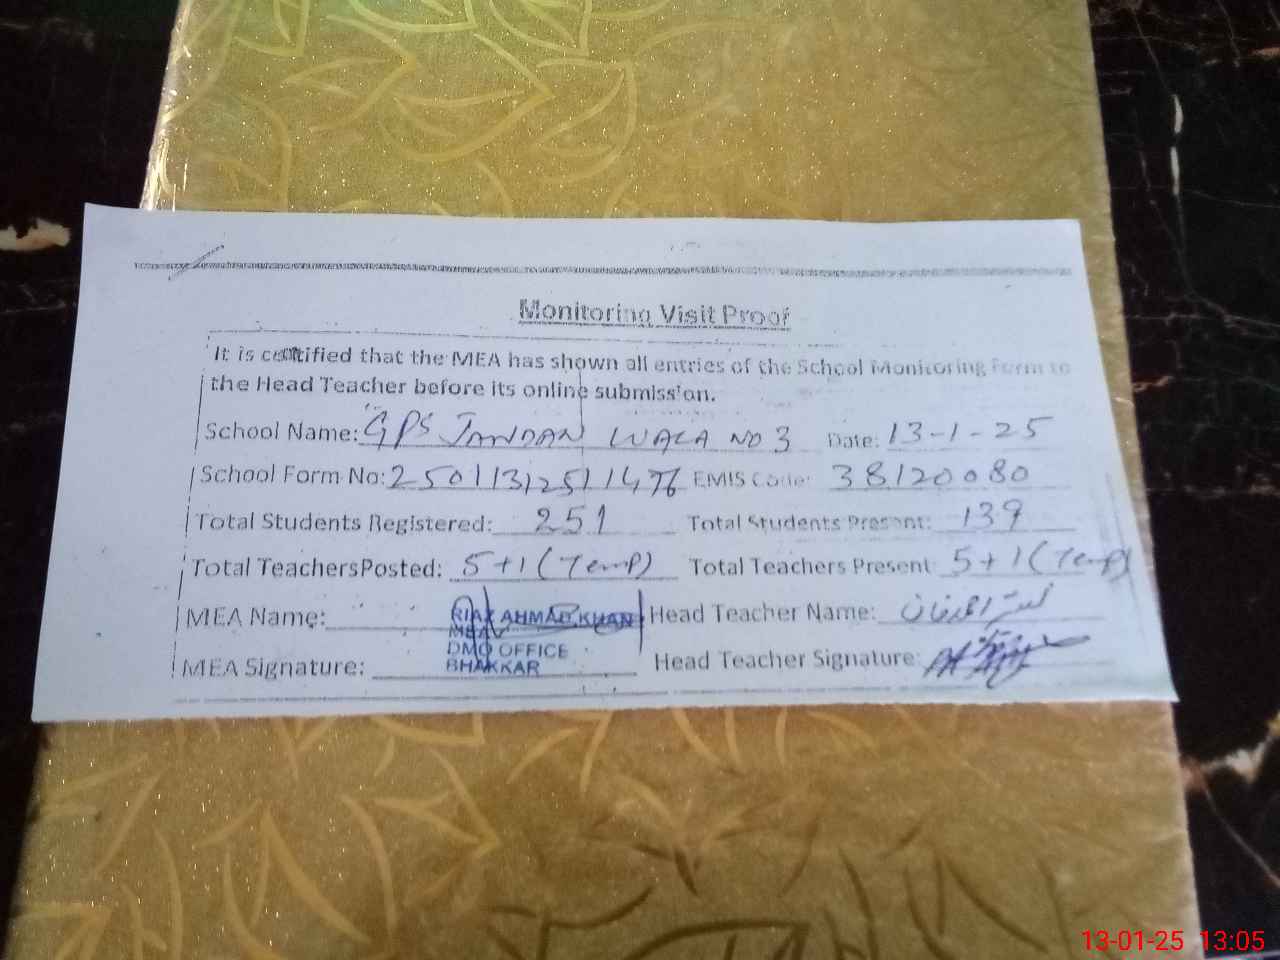 Monitoring Visit Proof
It is certified that the MEA has shown all entries of the School Monitoring Form to
the Head Teacher before its online submission.
School Name: GPS JANDAN WALA NO 3 Date: 13-1-25
School Form No: 25011312511476 EMIS Code: 38120080
Total Students Registered: 251 Total Students Present: 139
Total TeachersPosted: 5+1 (Temp) Total Teachers Present: 5+1 (Temp)
MEA Name: RIAZ AHMAD KHAN Head Teacher Name:
MEA
DMO OFFICE
MEA Signature: BHAKKAR Head Teacher Signature:
13-01-25 13:05